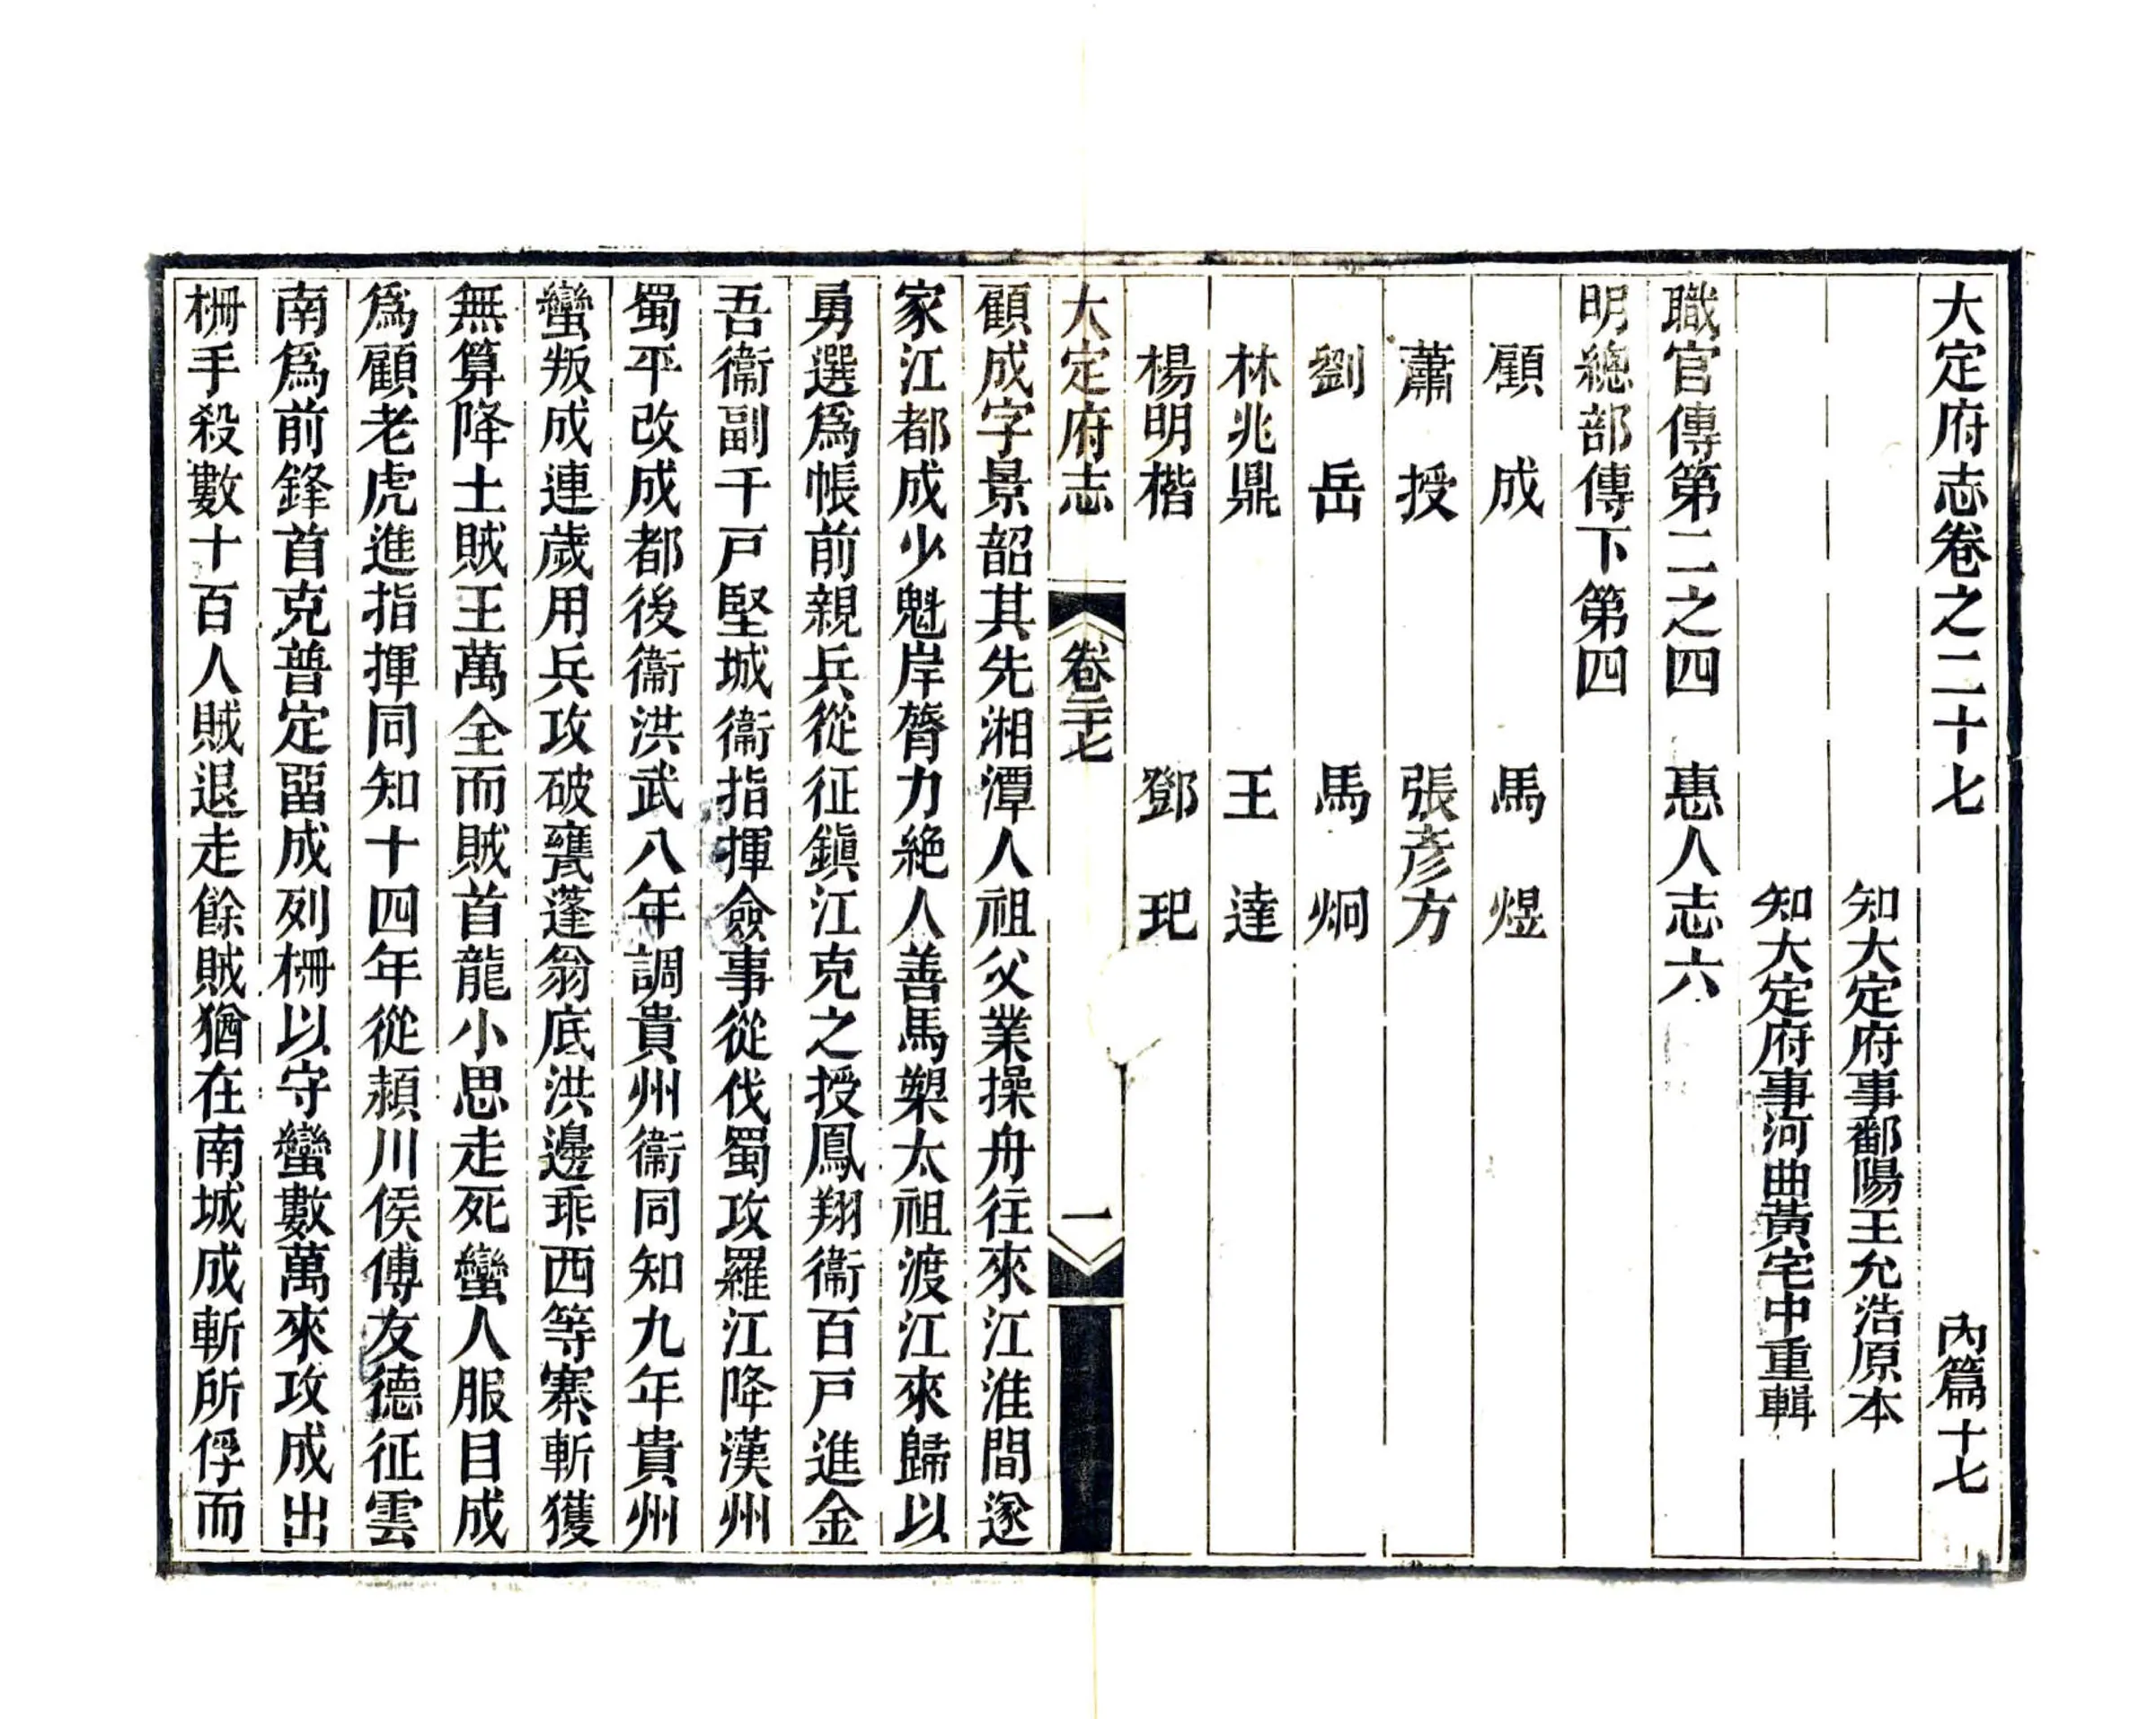 大定府志卷之二十七　內篇十七
知大定府事鄱陽王允浩原本
知大定府事河曲黃宅中重輯
職官傳第二之四　惠人志六
明總部傳下第四
顧成　馬煜
蕭授　張彥方
劉岳　馬炯
林兆鼎　王達
楊明楷　鄧玘
大定府志　卷二十七　一
顧成字景韶其先湘潭人祖父業操舟往來江淮間遂
家江都成少魁岸膂力絶人善馬槊太祖渡江來歸以
勇選爲帳前親兵從征鎮江克之授鳳翔衞百戸進金
吾衞副千戸堅城衞指揮僉事從伐蜀攻羅江降漢州
蜀平改成都後衞洪武八年調貴州衞同知九年貴州
蠻叛成連歲用兵攻破甕蓬翁底洪邊乖西等寨斬獲
無算降土賊王萬全而賊首龍小思走死蠻人服目成
爲顧老虎進指揮同知十四年從潁川侯傅友德征雲
南爲前鋒首克普定留成列柵以守蠻數萬來攻成出
柵手殺數十百人賊退走餘賊猶在南城成斬所俘而